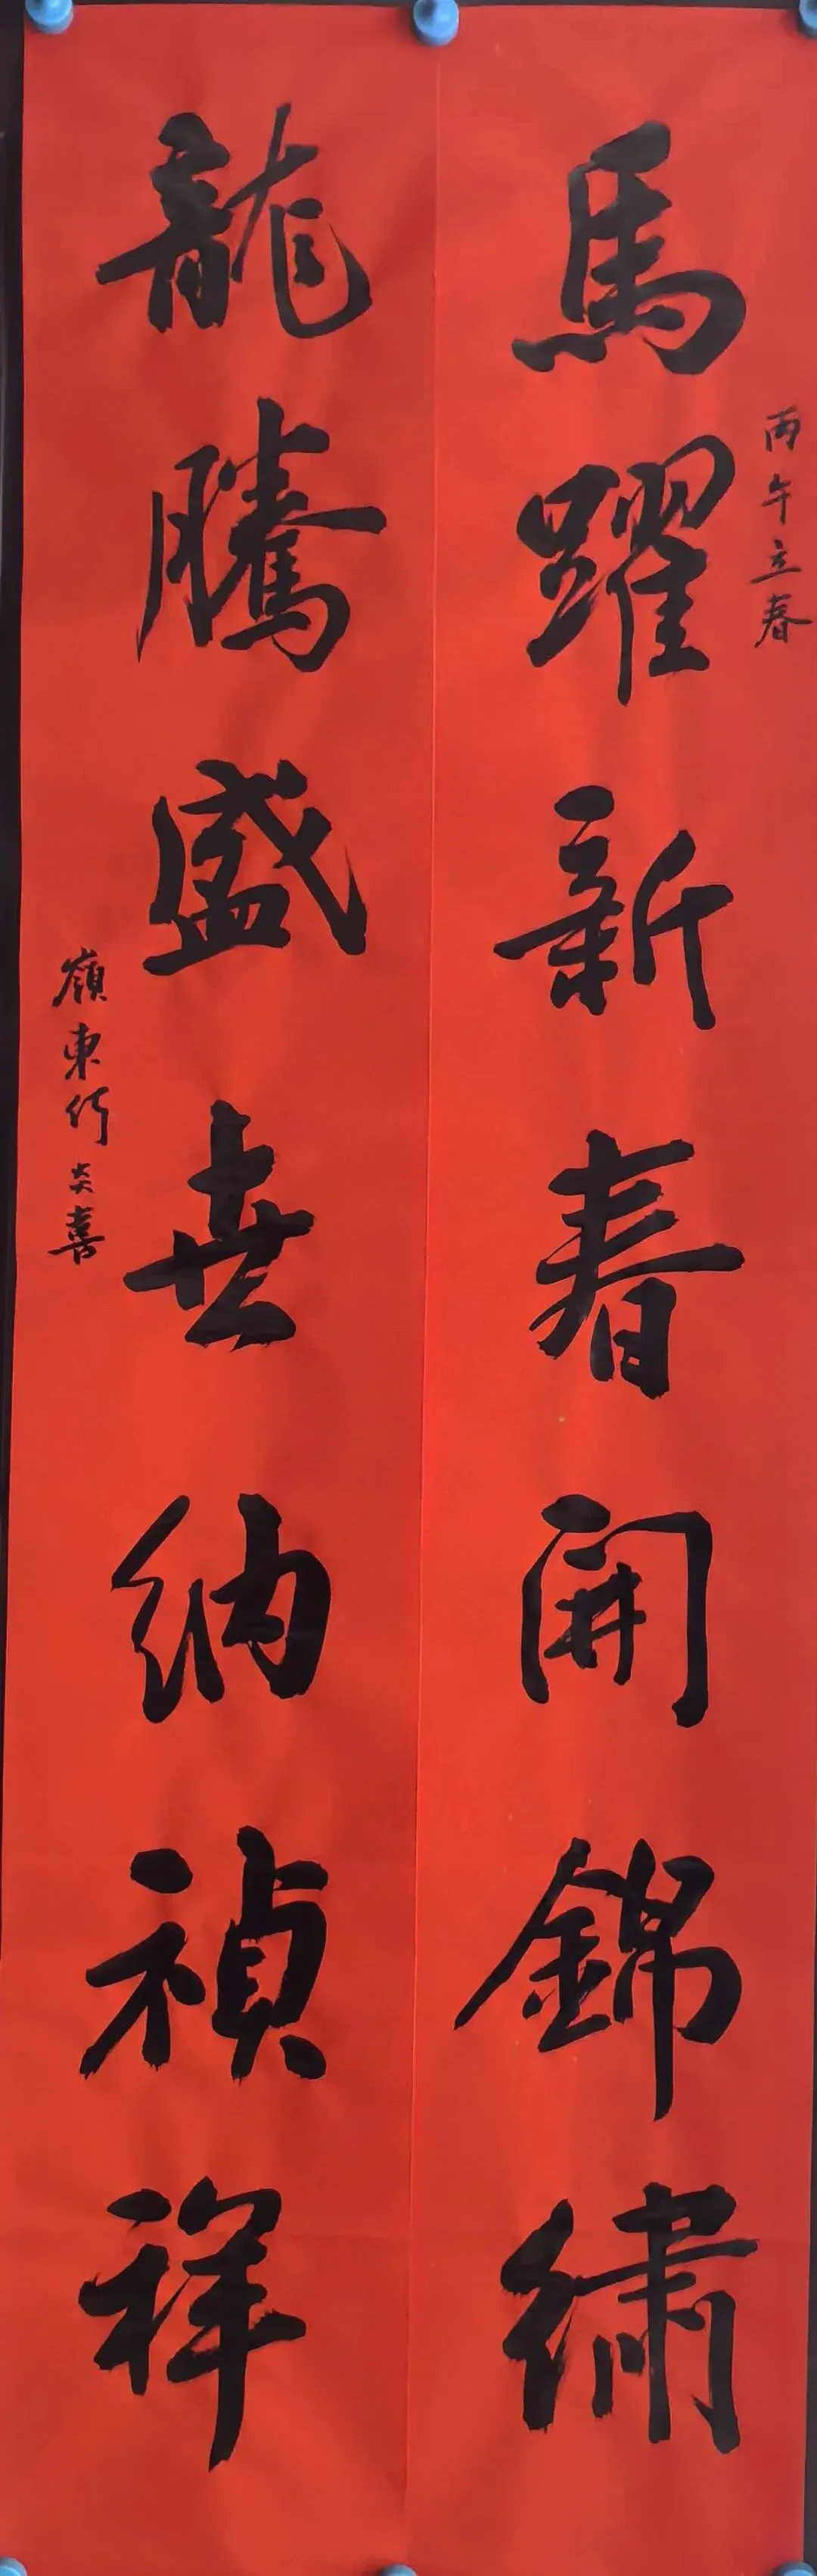 丙午立春
馬躍新春開錦繡
龍騰盛世納禎祥
嶺東炎喜